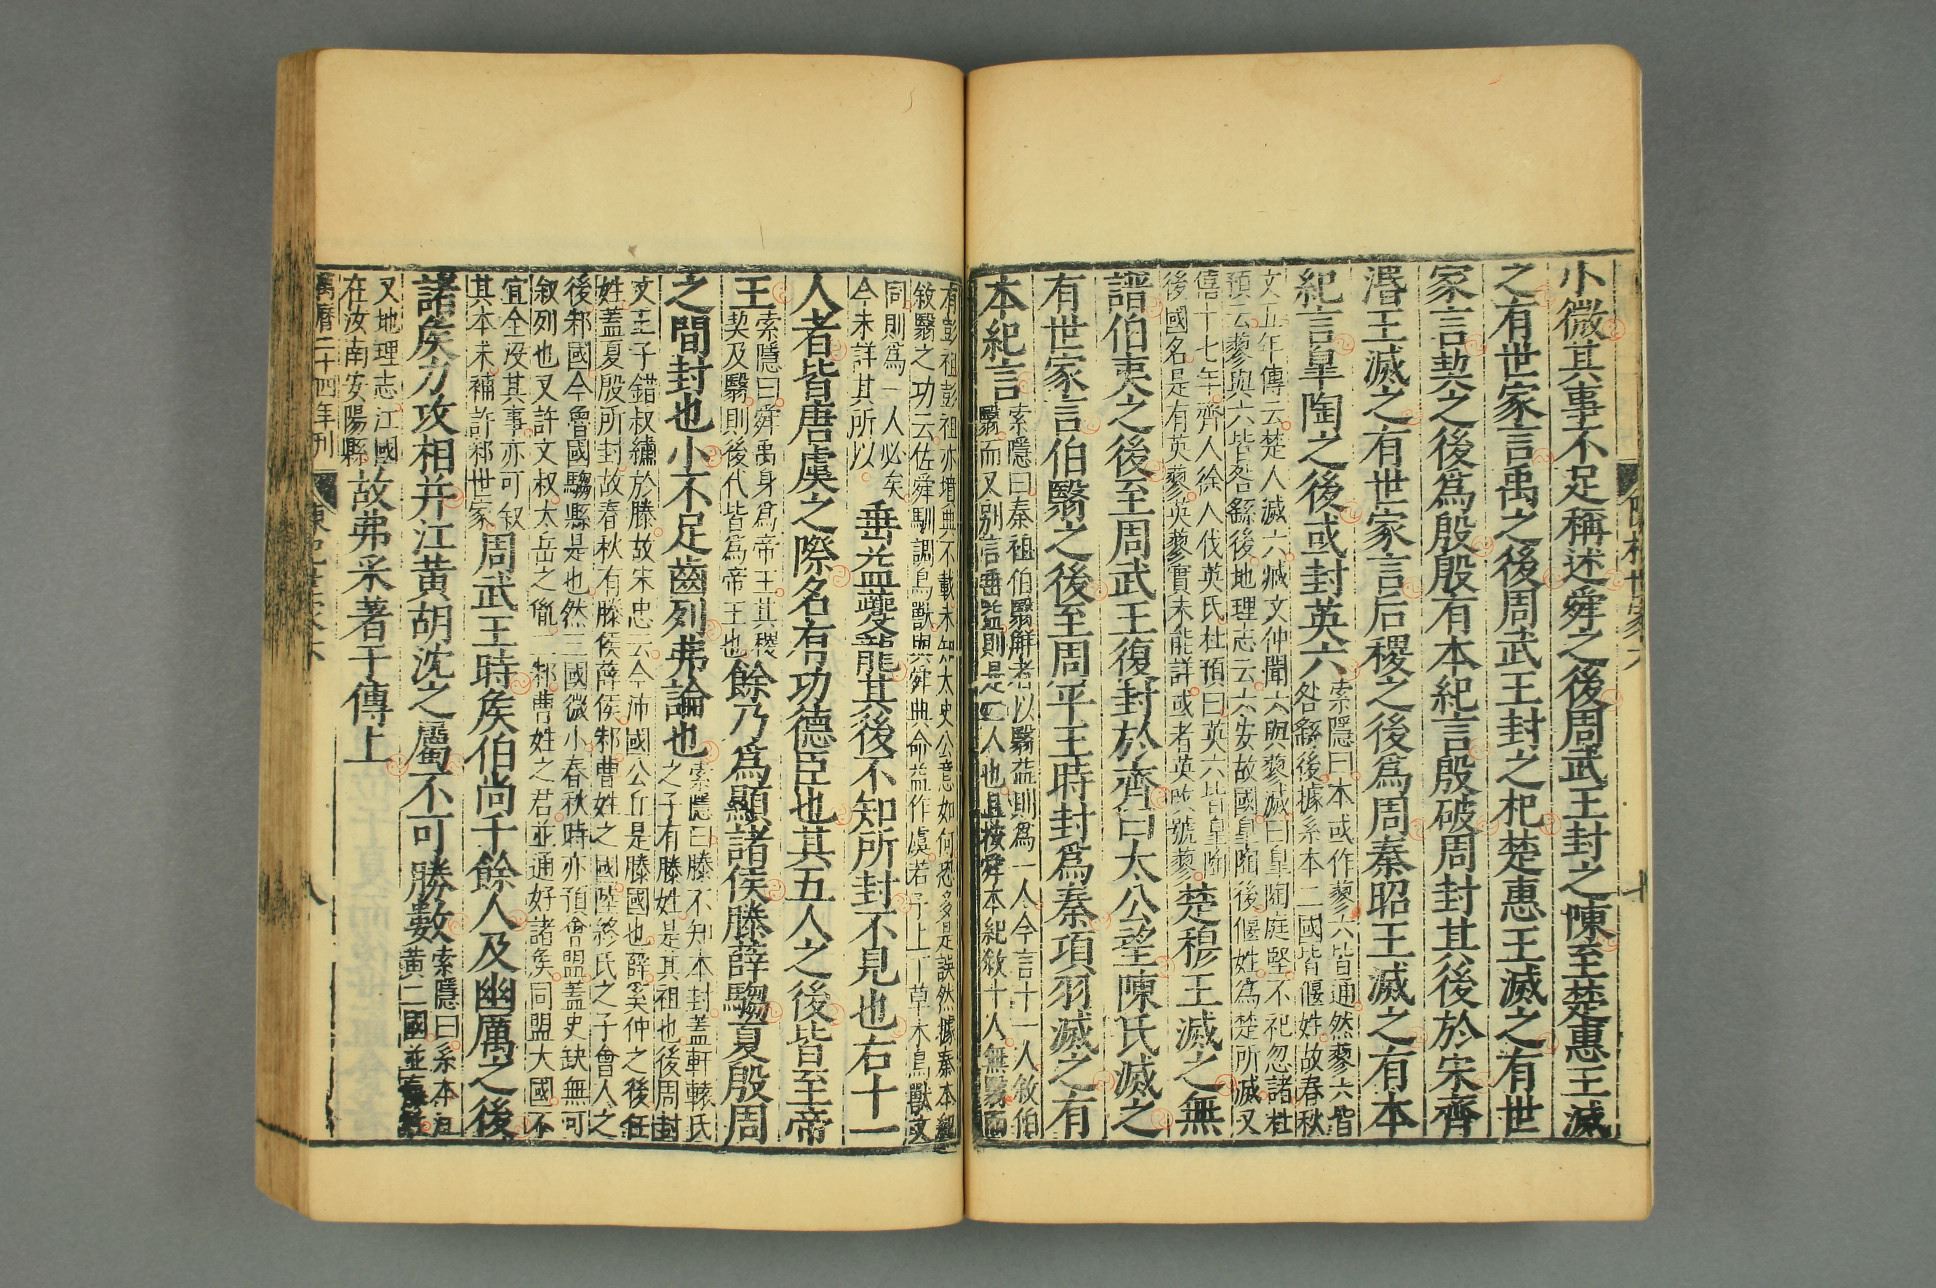 陳杞世家六
小微其事不足稱述舜之後周武王封之陳至楚惠王滅
之有世家言禹之後周武王封之杞楚惠王滅之有世
家言契之後爲殷殷有本紀言殷破周封其後於宋齊
湣王滅之有世家言后稷之後爲周秦昭王滅之有本
紀言皐陶之後或封英六
索隱曰本或作蓼六皆通然蓼六皆
咎繇後據系本二國皆偃姓故春秋
文五年傳云楚人滅六臧文仲聞六與蓼滅曰皐陶庭堅不祀忽諸杜
預云蓼與六皆咎繇後地理志云六安故國皐陶後偃姓爲楚所滅又
僖十七年齊人徐人伐英氏杜預曰英六皆皐陶
後國名是有英蓼英蓼實未能詳或者英改號蓼
楚穆王滅之無
譜伯夷之後至周武王復封於齊曰太公望陳氏滅之
有世家言伯翳之後至周平王時封爲秦項羽滅之有
本紀言
索隱曰秦祖伯翳解者以翳益則爲一人今言十一人敘伯
翳而又别言垂益則是二人也且按舜本紀敘十人無翳而
有彭祖彭祖亦墳典不載未知太史公意如何恐多是誤然據秦本紀
敘翳之功云佐舜馴調鳥獸與舜典命益作虞若予上下草木鳥獸文
同則爲一人必矣
今未詳其所以
垂益夔龍其後不知所封不見也右十一
人者皆唐虞之際名有功德臣也其五人之後皆至帝
王
索隱曰舜禹身爲帝王其稷
契及翳則後代皆爲帝王也
餘乃爲顯諸侯滕薛騶夏殷周
之間封也小不足齒列弗論也
索隱曰滕不知本封蓋軒轅氏
之子有滕姓是其祖也後周封
文王子錯叔繡於滕故宋忠云今沛國公丘是滕國也薛奚仲之後任
姓蓋夏殷所封故春秋有滕侯薛侯邾曹姓之國陸終氏之子會人之
後邾國今魯國騶縣是也然三國微小春秋時亦預會盟蓋史缺無可
叙列也又許文叔太岳之胤二邾曹姓之君並通好諸侯同盟大國不
宜全沒其事亦可叙
其本末補許邾世家
周武王時侯伯尚千餘人及幽厲之後
諸侯力攻相并江黃胡沈之屬不可勝數
索隱曰系本江
黃二國並嬴姓
又地理志江國
在汝南安陽縣
故弗采著于傳上
萬曆二十四年刊
八